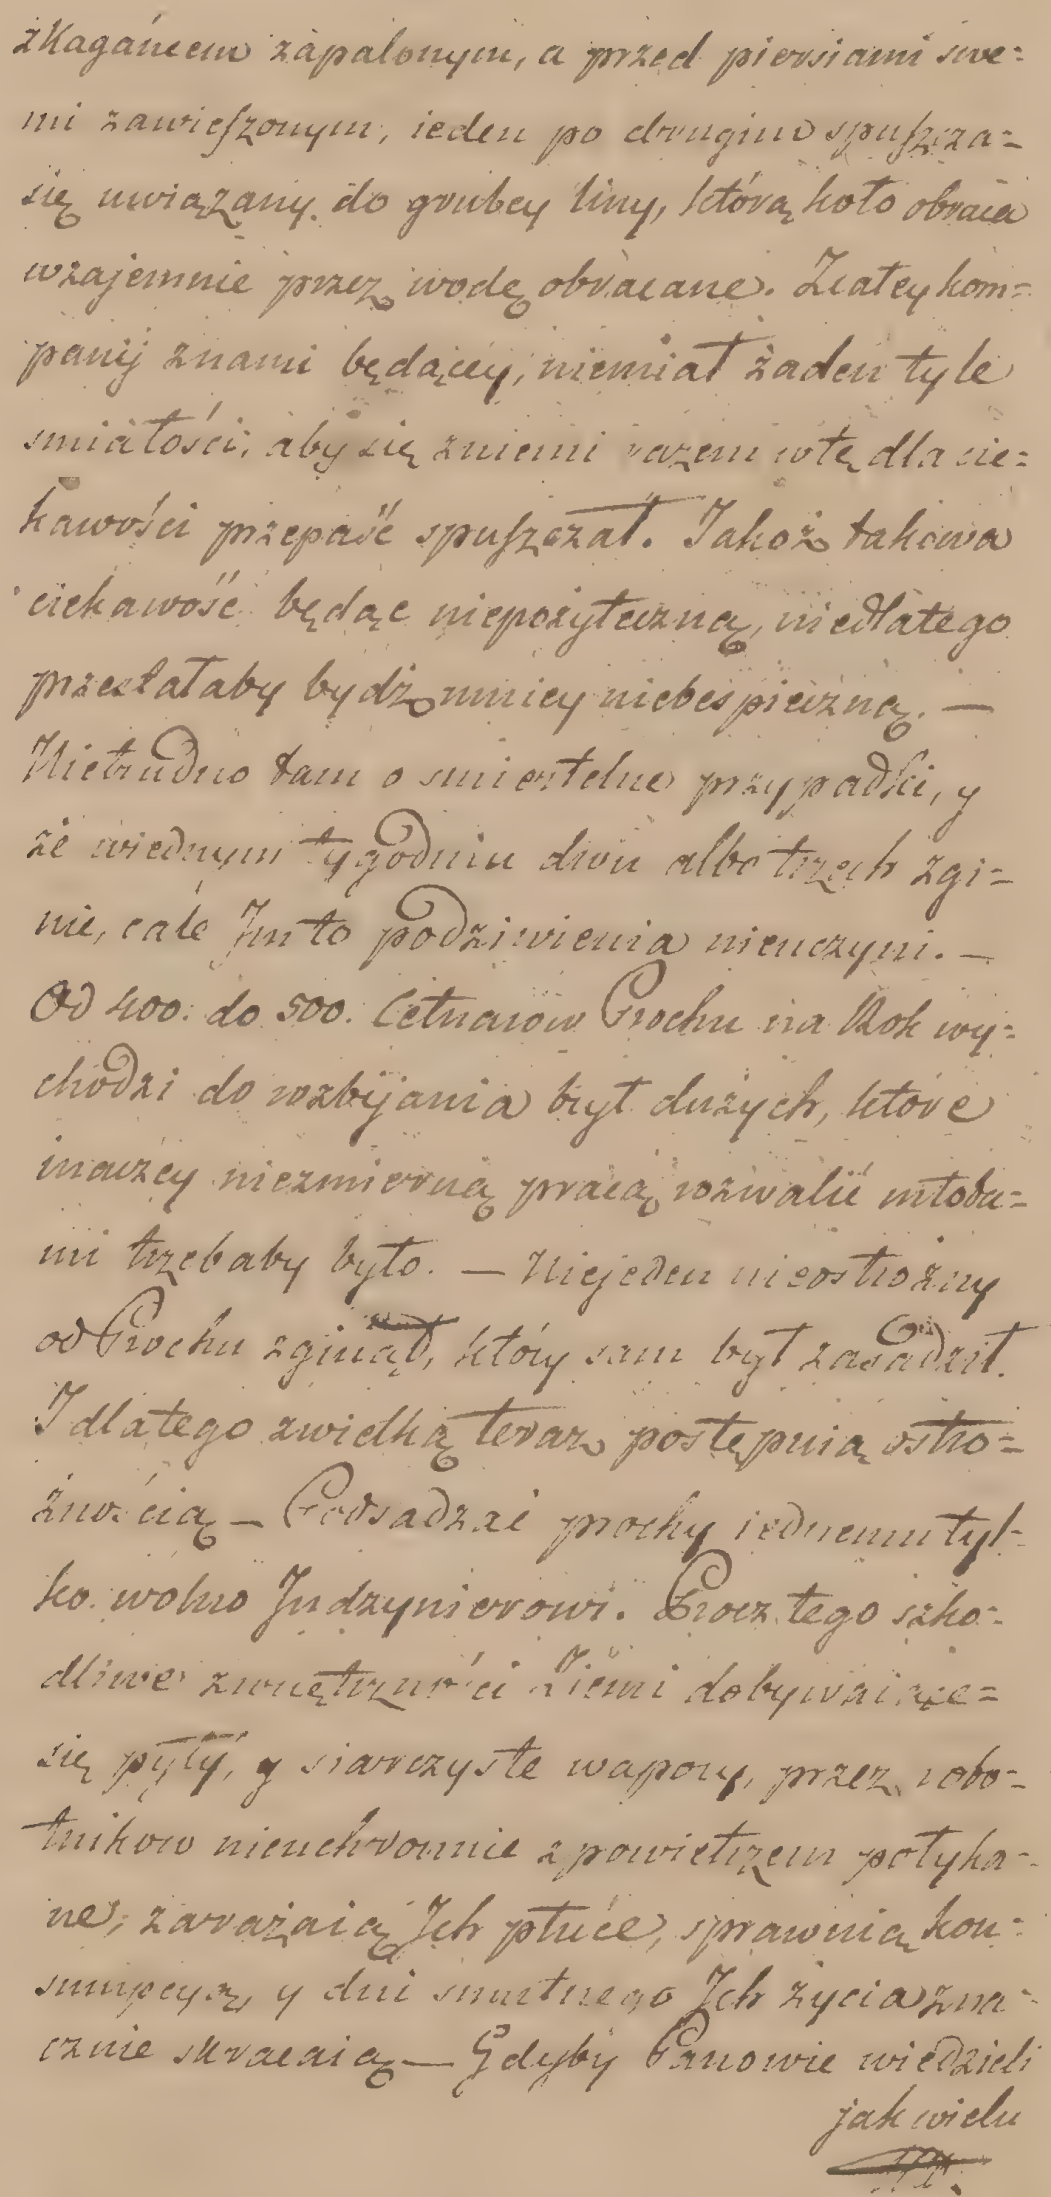 zKagańcem zapalonym, a przed piersiami swe=
mi zawieszonym, ieden po drugim spuszcza=
się uwiązany do grubey liny, którą koło obraca
wzajemnie przez wodę obracane. Zcałey kom=
panij znami będącey, niemiał żaden tyle
smiałości, aby się zniemi razem wtę dla cie=
kawości przepaść spuszczał. Jakoż takowa
ciekawość będąc niepożyteczną, niedlatego
przestałaby bydź mniey niebespieczną. —
Nietrudno tam o smiertelne przypadki, y
że wiednym tygodniu dwu albo trzech zgi=
nie, cale Im to podziwienia nieuczyni. —
Od 400. do 500. Cetnarow Prochu na Rok wy=
chodzi do rozbijania brył dużych, ktore
inaczey niezmierną pracą rozwalić młota=
mi trzebaby było. — Niejeden nieostrożny
od Prochu zginął, który sam był zasadził.
I dlatego zwielką teraz postępuią ostro=
żnością — Podsadzać prochy iednemu tyl=
ko wolno Indzynierowi. Procz tego szko=
dliwe zwnętrzności Ziemi dobywaiące=
się pyły, y siarczyste wapory, przez robo=
tnikow nieuchronnie z powietrzem połyka=
ne, zarażaią Ich płuce, sprawuią kon=
sumpcyą, y dni smutnego Ich życia zna=
cznie skracaią — Gdyby Panowie wiedzieli
jak wielu